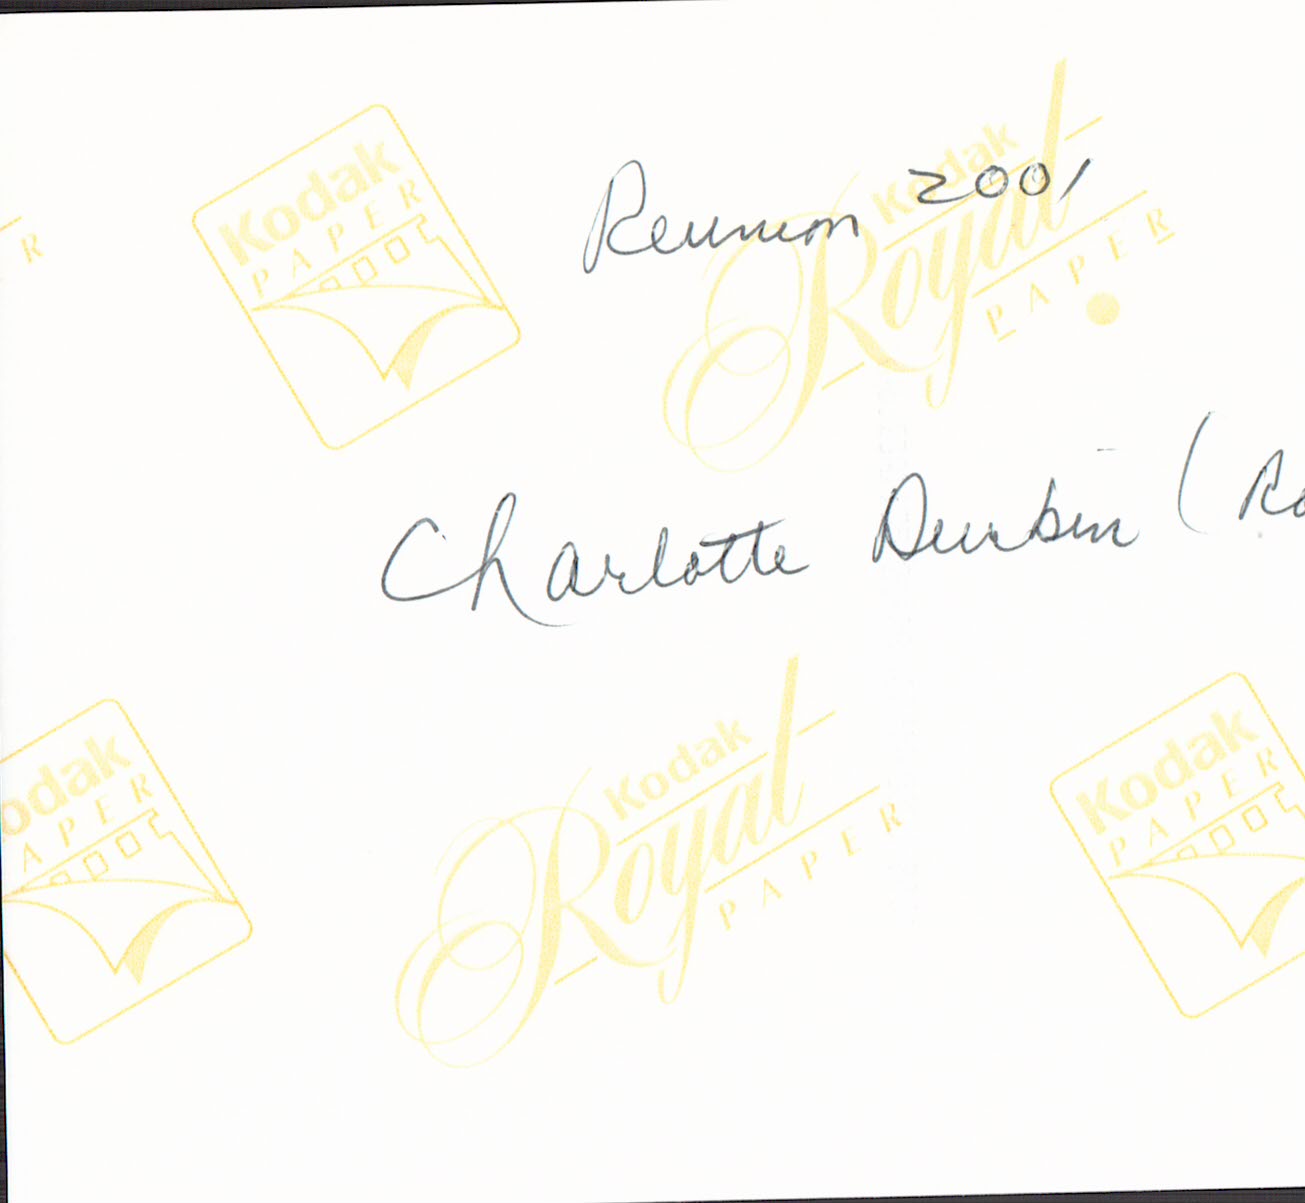 Kodak
PAPER
Reunion 2001
Kodak
Royal
PAPER
R
Charlotte Durbin (Ro
Kodak
Royal
PAPER
odak
APER
Kodak
PAPER